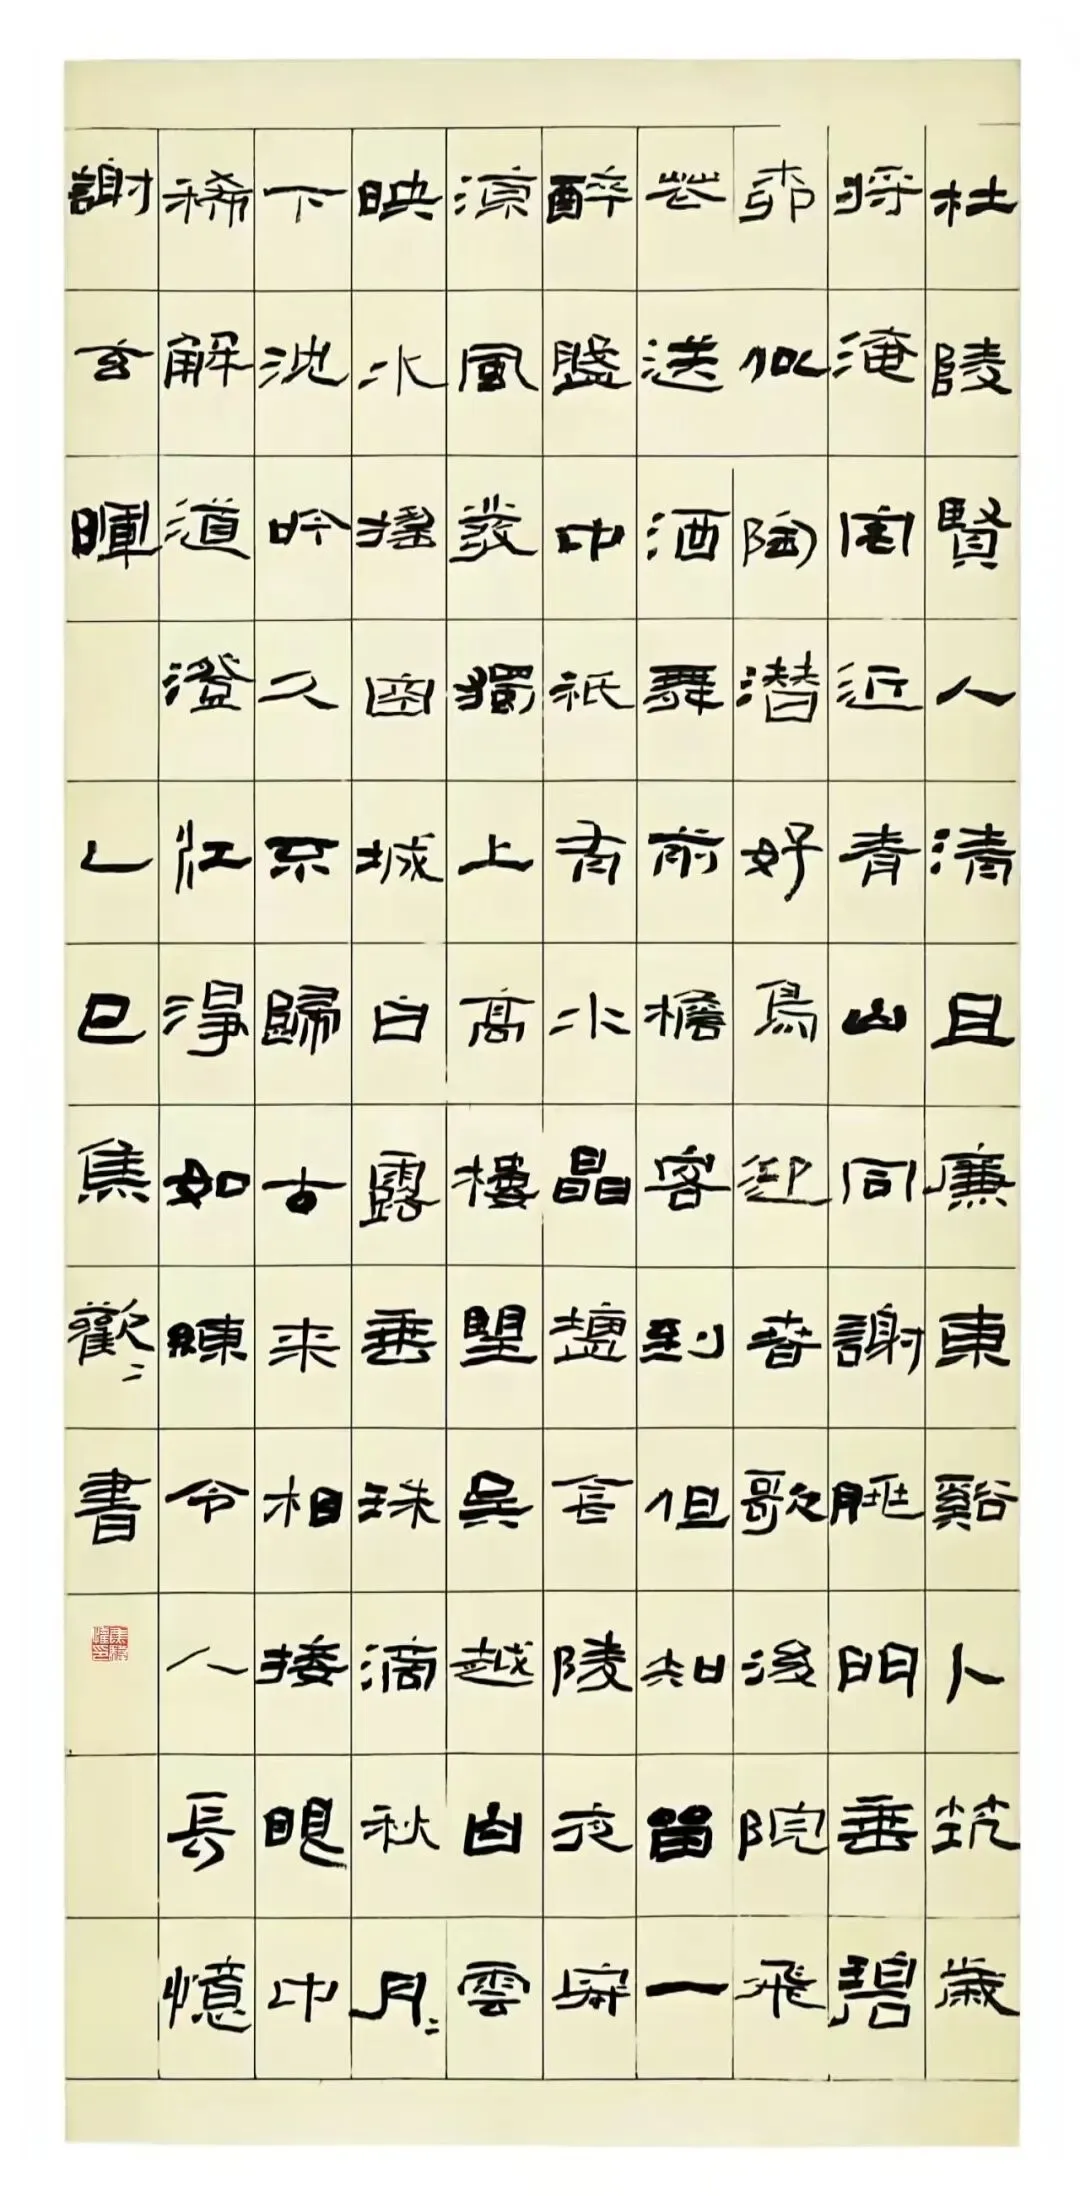 杜陵賢人清且廉東谿卜筑歲
将淹宅近青山同謝朓門垂碧
柳似陶潜好鳥迎春歌後院飛
花送酒舞前檐客到但知留一
醉盤中祇有水晶鹽金陵夜寂
涼風發獨上高樓望吳越白雲
映水摇空城白露垂珠滴秋月〻
下沈吟久不歸古来相接眼中
稀解道澄江淨如練令人長憶
謝玄暉 乙巳焦歡〻書